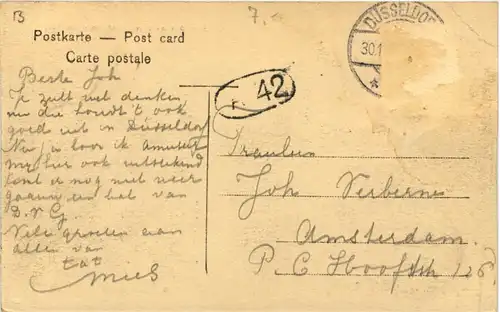 B
7.-
Postkarte — Post card
Carte postale
DÜSSELDO
30.1
F. 42
Beste Joh
Je zult wel denken
nu die houdt 't ook
goed uit in Düsseldorf
Nu, hoor ik amuseer
mij hier ook uitstekend
nog niet weer
van
D. v G.
Vele groeten aan
allen van
tat
Mies
Fraulein
Joh Verberne
Amsterdam.
P. C Hooftstr 126